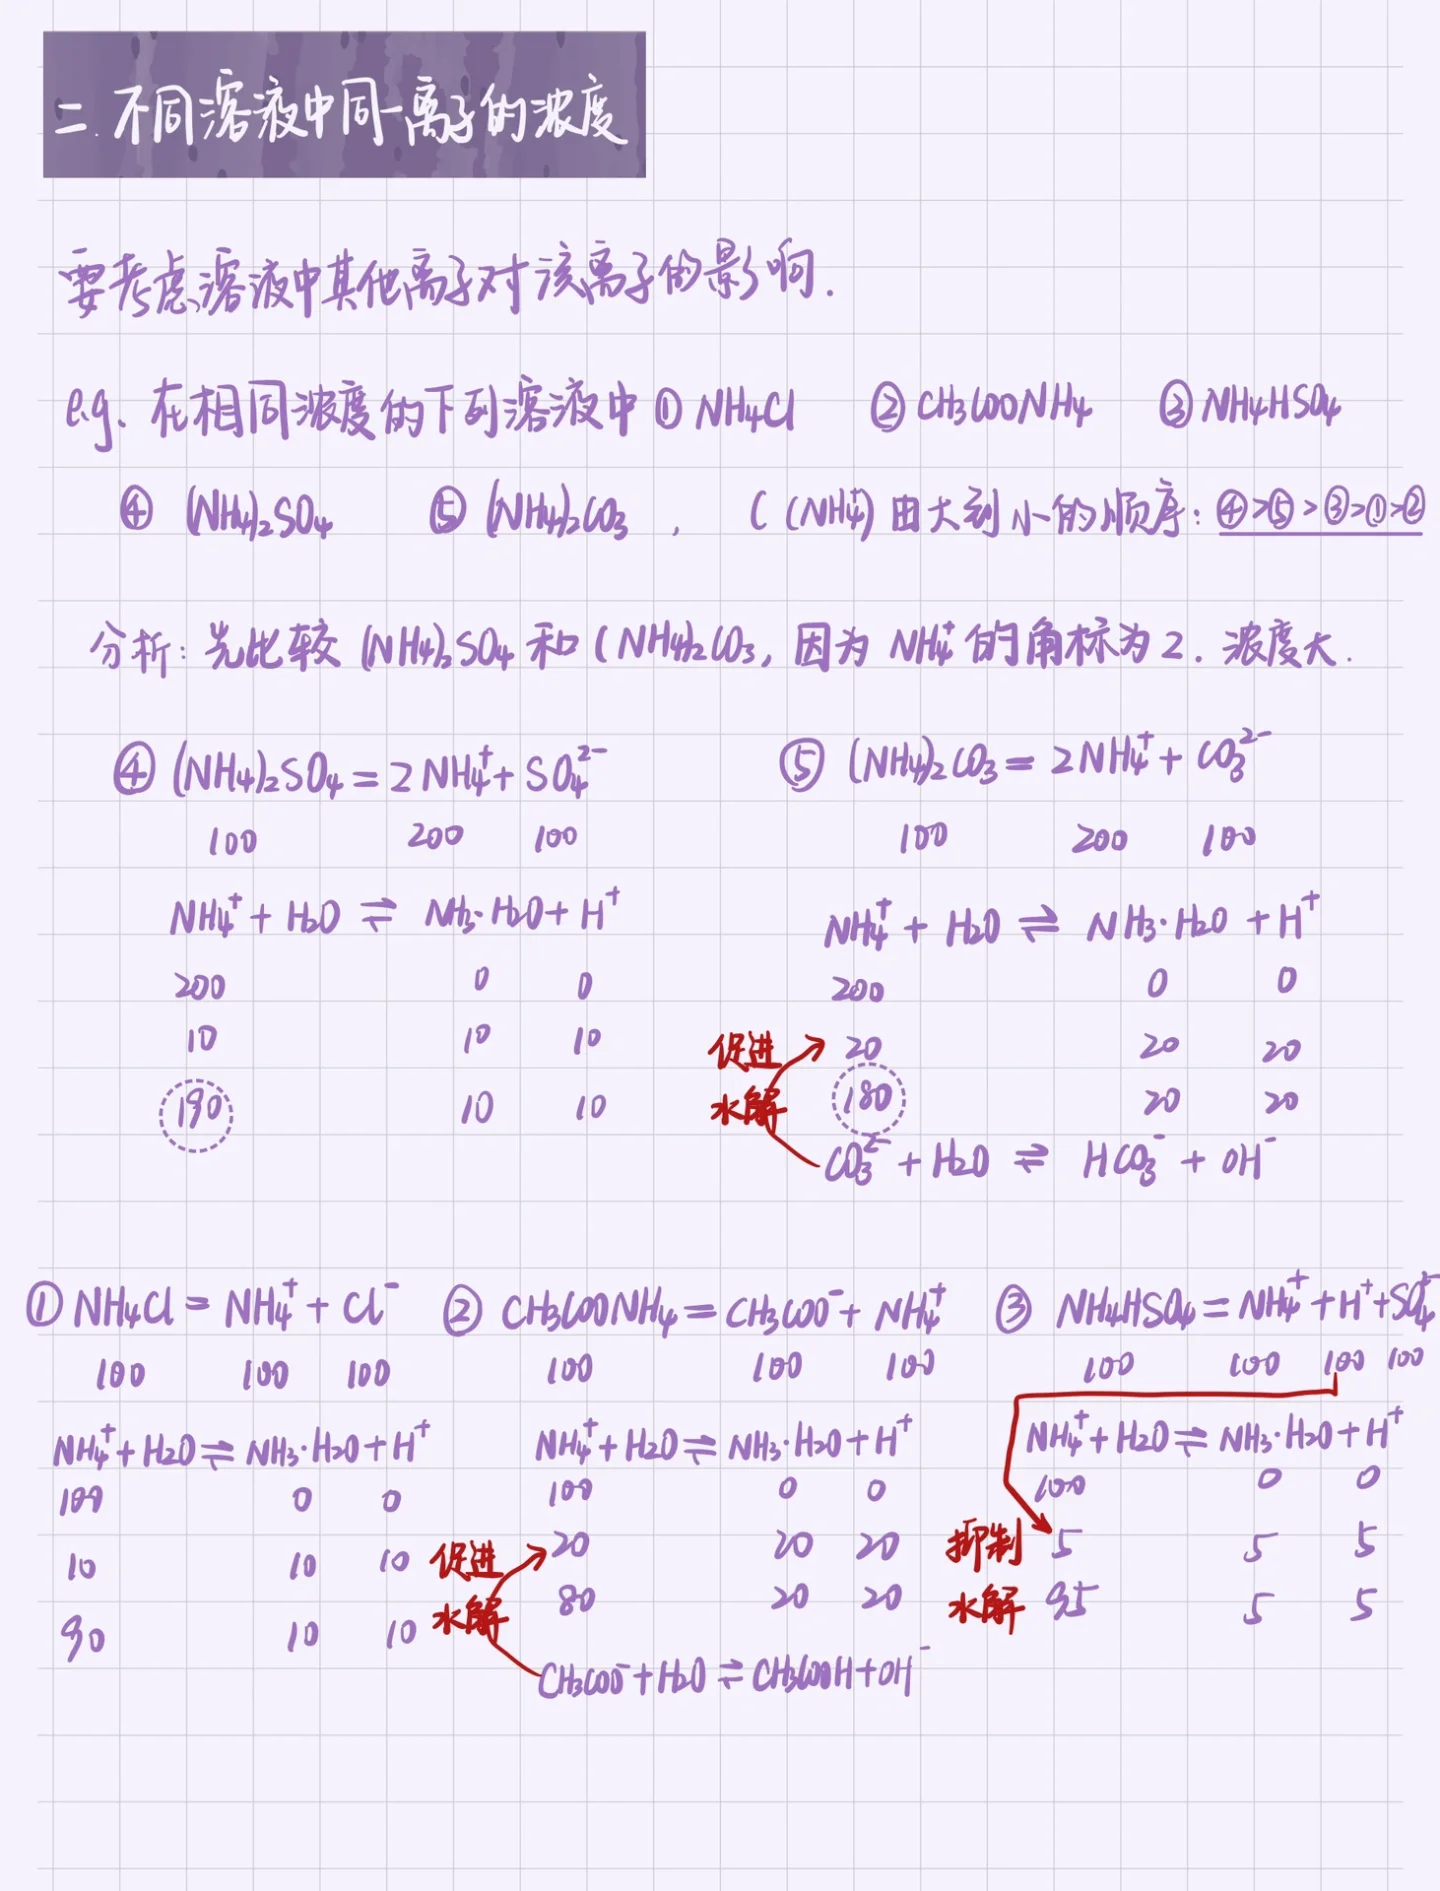 二.不同溶液中同一离子的浓度
要考虑溶液中其他离子对该离子的影响.
e.g. 在相同浓度的下列溶液中 ① NH₄Cl ② CH₃COONH₄ ③ NH₄HSO₄
④ (NH₄)₂SO₄ ⑤ (NH₄)₂CO₃ , C (NH₄⁺) 由大到小的顺序: ④>⑤>③>①>②
分析: 先比较 (NH₄)₂SO₄ 和 (NH₄)₂CO₃, 因为 NH₄⁺ 的角标为 2. 浓度大.
④ (NH₄)₂SO₄ = 2NH₄⁺ + SO₄²⁻
100 200 100
NH₄⁺ + H₂O ⇌ NH₃·H₂O + H⁺
200 0 0
10 10 10
190 10 10
⑤ (NH₄)₂CO₃ = 2NH₄⁺ + CO₃²⁻
100 200 100
NH₄⁺ + H₂O ⇌ NH₃·H₂O + H⁺
200 0 0
促进 20 20 20
水解 180 20 20
CO₃²⁻ + H₂O ⇌ HCO₃⁻ + OH⁻
① NH₄Cl = NH₄⁺ + Cl⁻
100 100 100
NH₄⁺ + H₂O ⇌ NH₃·H₂O + H⁺
100 0 0
10 10 10
90 10 10
② CH₃COONH₄ = CH₃COO⁻ + NH₄⁺
100 100 100
NH₄⁺ + H₂O ⇌ NH₃·H₂O + H⁺
100 0 0
促进 20 20 20
水解 80 20 20
CH₃COO⁻ + H₂O ⇌ CH₃COOH + OH⁻
③ NH₄HSO₄ = NH₄⁺ + H⁺ + SO₄²⁻
100 100 100 100
NH₄⁺ + H₂O ⇌ NH₃·H₂O + H⁺
100 0 0
抑制 5 5 5
水解 95 5 5